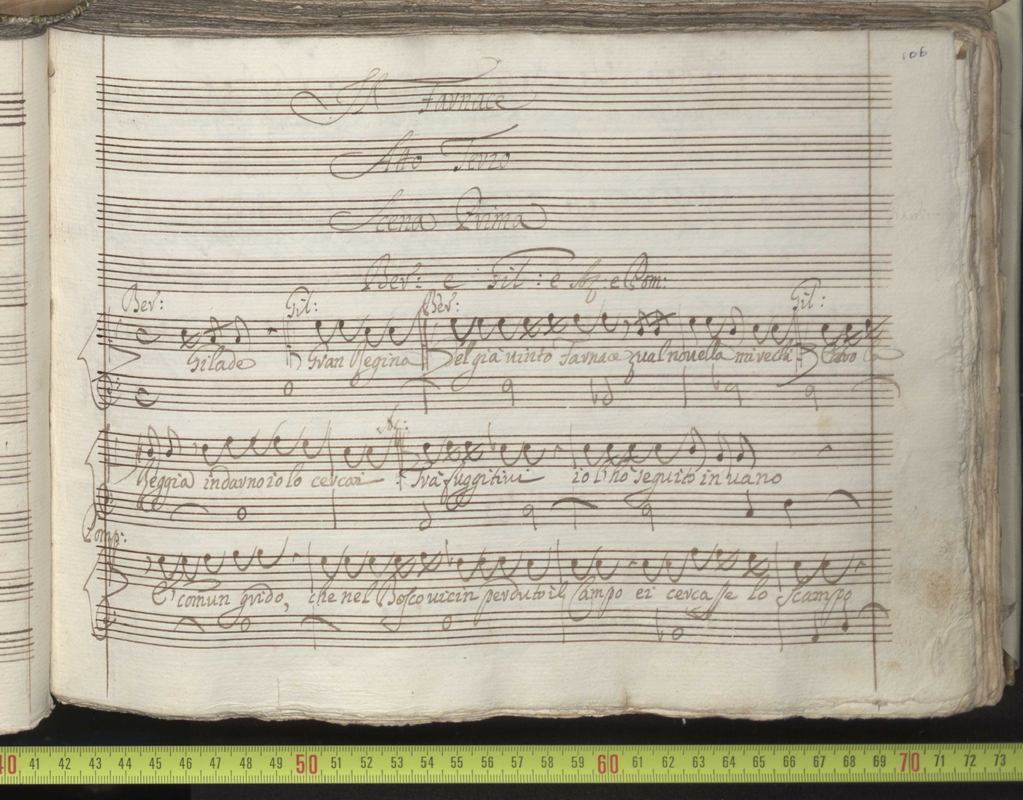 106
Il Farnace
Atto Terzo
Scena Prima
Ber: e Gil: e Aq: e Pom:
Ber: Gil: Ber: Gil:
Gilade Gran Regina Del già vinto Farnace qual novella mi rechi? Entro la
Reggia indarno io lo cercai Trà fuggitivi io l'hò seguito in vano
Pomp:
E' comun grido, che nel Bosco vicin perduto il Campo ei cercasse lo scampo
40 41 42 43 44 45 46 47 48 49 50 51 52 53 54 55 56 57 58 59 60 61 62 63 64 65 66 67 68 69 70 71 72 73